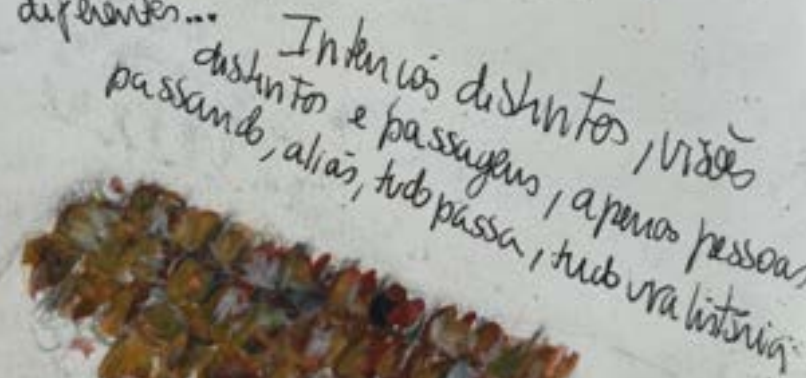 diferentes...
Intenciós distintos, visões
distintos e passagens, apenas pessoas
passando, aliás, tudo passa, tudo vra história